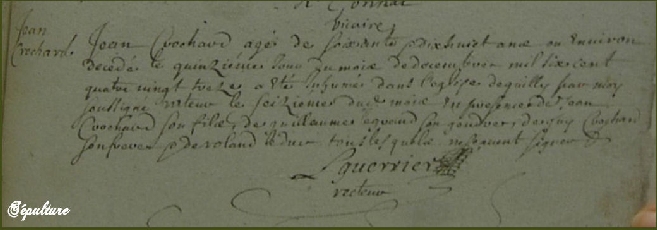 vicaire
Jean
Crochard
Jean Crochard agé de soixante & dix huict ans ou environ
decedé le quinzieme jour du mois de decembre mil six cent
quatre vingt treze a été inhumé dans l'eglise de guilly par moy
soussigné recteur le seizieme dud mois en presence de Jean
Crochard son fils, de guleaume son gendre, de Crochard
son frere & de roland leduc tous lesquels ne signer
Guerrier
recteur
Sépulture